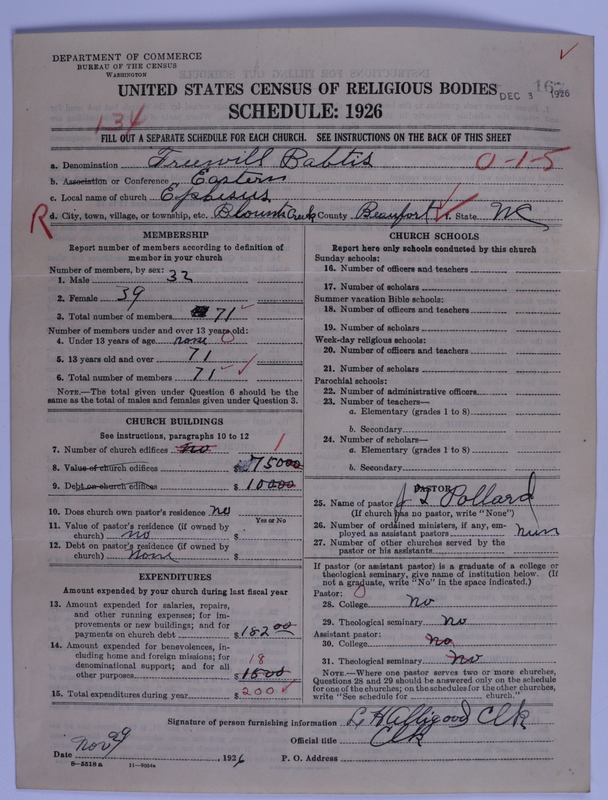 DEPARTMENT OF COMMERCE
BUREAU OF THE CENSUS
WASHINGTON
UNITED STATES CENSUS OF RELIGIOUS BODIES
DEC 3 1926
SCHEDULE: 1926
134
FILL OUT A SEPARATE SCHEDULE FOR EACH CHURCH. SEE INSTRUCTIONS ON THE BACK OF THIS SHEET
a. Denomination Freewill Babtis 0-1-5
b. Association or Conference Eastern
c. Local name of church Ephesus
R d. City, town, village, or township, etc. Blounts Creek County Beaufort State NC
MEMBERSHIP
Report number of members according to definition of member in your church
Number of members, by sex:
1. Male 32
2. Female 39
3. Total number of members 71
Number of members under and over 13 years old:
4. Under 13 years of age none 0
5. 13 years old and over 71
6. Total number of members 71
NOTE.—The total given under Question 6 should be the same as the total of males and females given under Question 3.
CHURCH BUILDINGS
See instructions, paragraphs 10 to 12
7. Number of church edifices no 1
8. Value of church edifices $ 75000
9. Debt on church edifices $ 10000
10. Does church own pastor's residence no
Yes or No
11. Value of pastor's residence (if owned by church) no $
12. Debt on pastor's residence (if owned by church) none $
EXPENDITURES
Amount expended by your church during last fiscal year
13. Amount expended for salaries, repairs, and other running expenses; for improvements or new buildings; and for payments on church debt $ 182 00
14. Amount expended for benevolences, including home and foreign missions; for denominational support; and for all other purposes 18 $ 1800
15. Total expenditures during year $ 200
CHURCH SCHOOLS
Report here only schools conducted by this church
Sunday schools:
16. Number of officers and teachers
17. Number of scholars
Summer vacation Bible schools:
18. Number of officers and teachers
19. Number of scholars
Week-day religious schools:
20. Number of officers and teachers
21. Number of scholars
Parochial schools:
22. Number of administrative officers
23. Number of teachers—
a. Elementary (grades 1 to 8)
b. Secondary
24. Number of scholars—
a. Elementary (grades 1 to 8)
b. Secondary
PASTOR
25. Name of pastor J L Pollard
(If church has no pastor, write "None")
26. Number of ordained ministers, if any, employed as assistant pastors nun
27. Number of other churches served by the pastor or his assistants
If pastor (or assistant pastor) is a graduate of a college or theological seminary, give name of institution below. (If not a graduate, write "No" in the space indicated.)
Pastor:
28. College no
29. Theological seminary no
Assistant pastor:
30. College no
31. Theological seminary no
NOTE.—Where one pastor serves two or more churches, Questions 28 and 29 should be answered only on the schedule for one of the churches; on the schedules for the other churches, write "See schedule for church."
Signature of person furnishing information L H Alligood Clk
Official title Clk
Date Nov 29, 1926 P. O. Address
8—5518 a 11—9054a